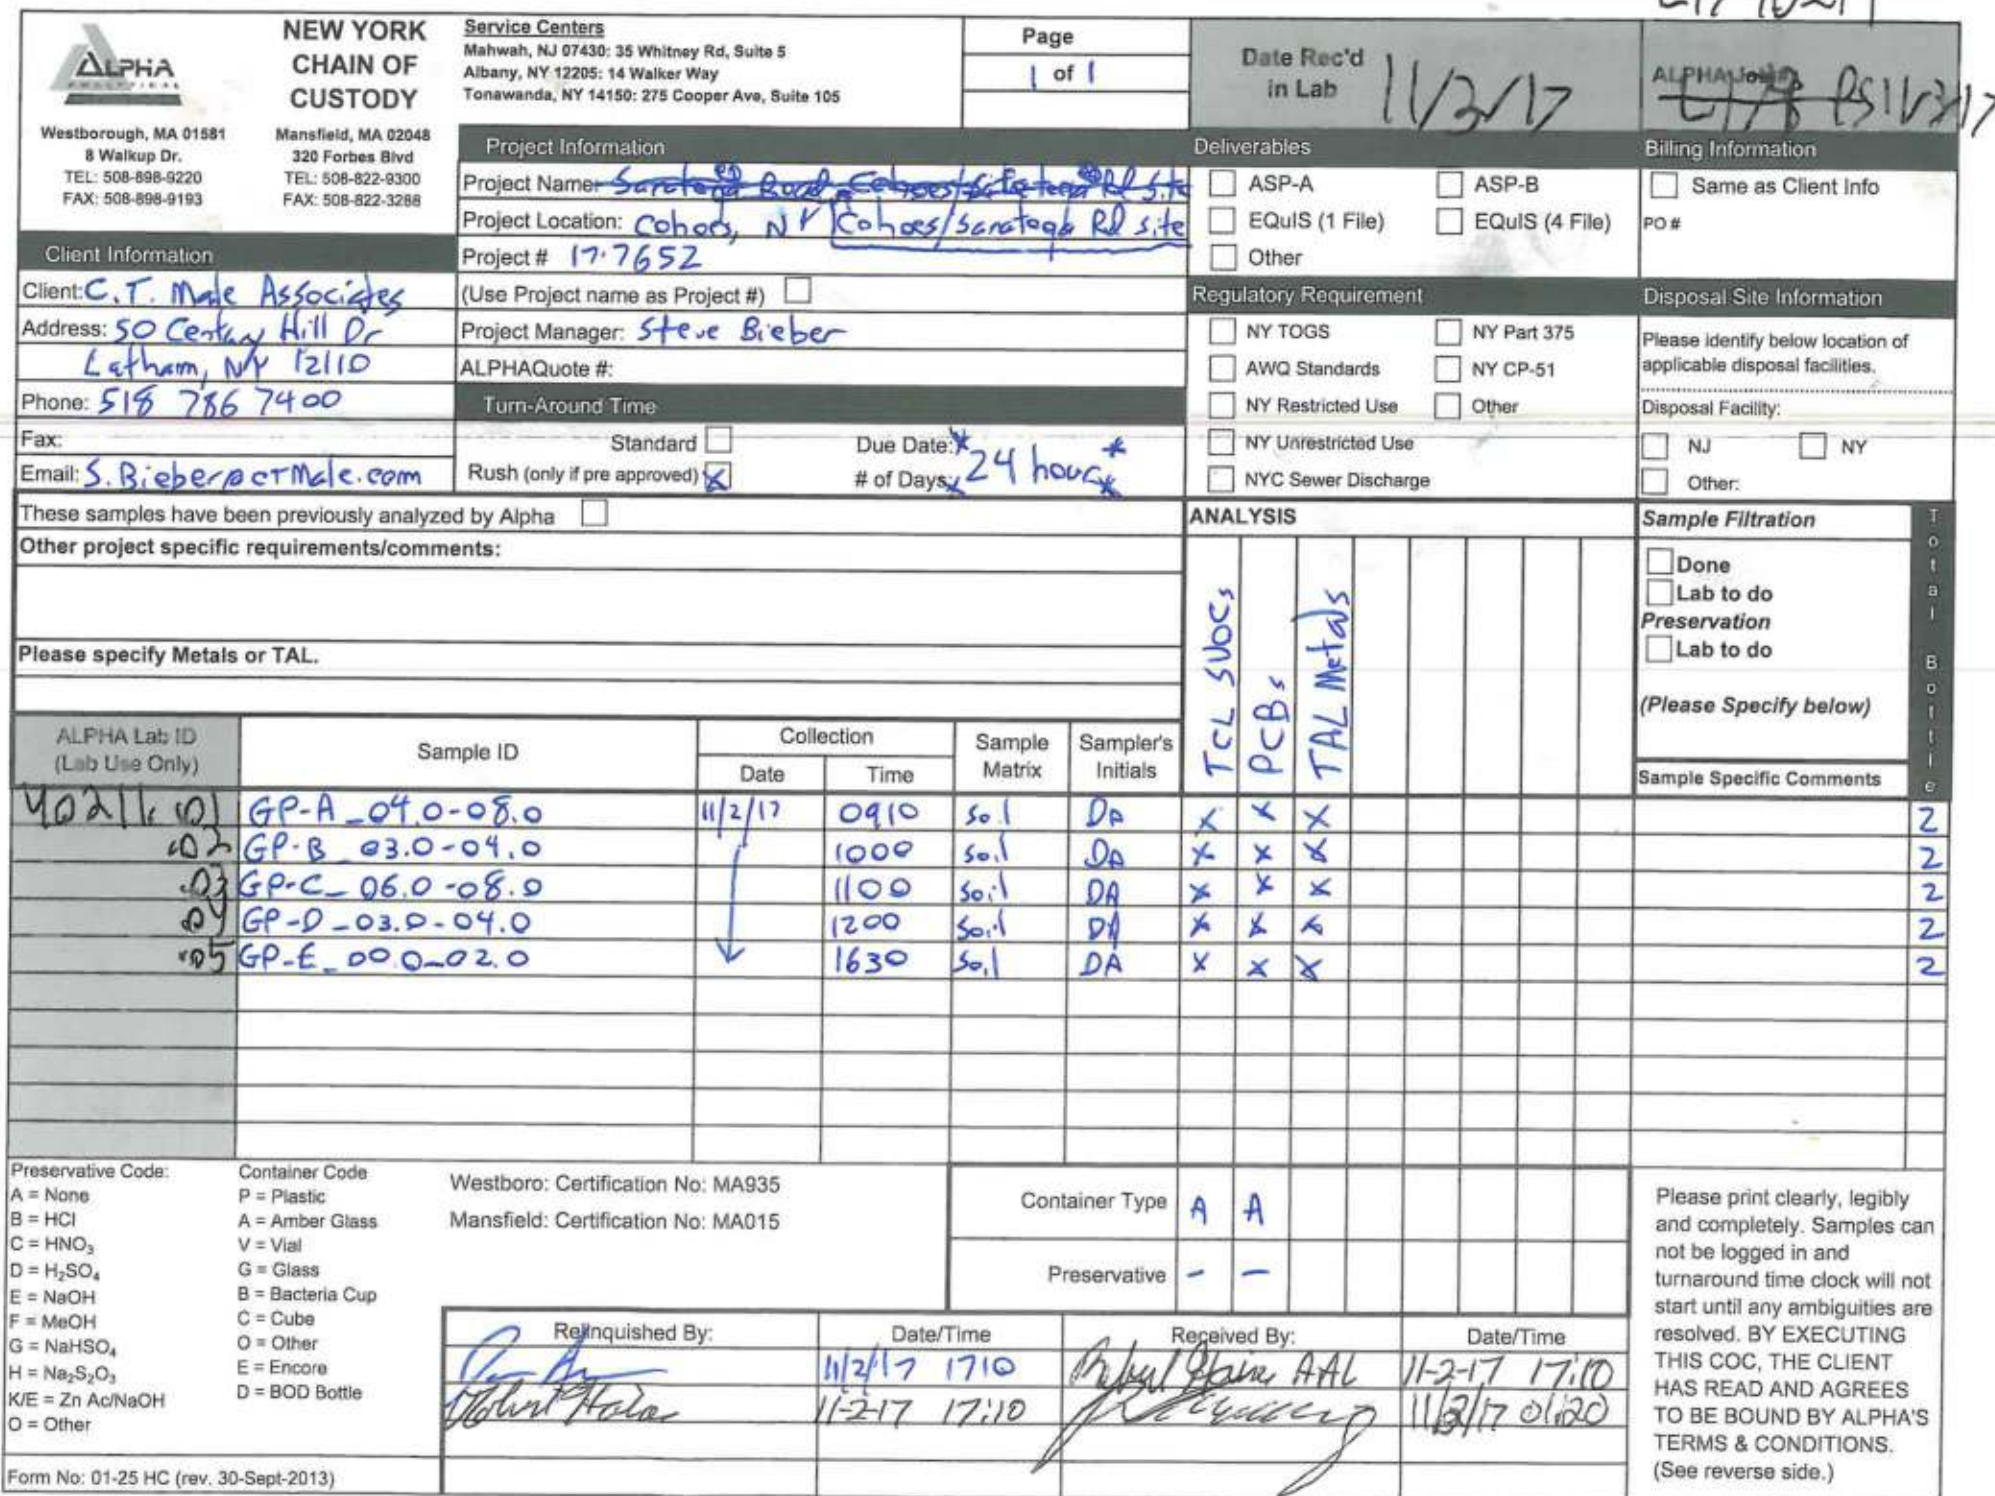 ALPHA
ANALYTICAL
Westborough, MA 01581
8 Walkup Dr.
TEL: 508-898-9220
FAX: 508-898-9193
NEW YORK
CHAIN OF
CUSTODY
Mansfield, MA 02048
320 Forbes Blvd
TEL: 508-822-9300
FAX: 508-822-3288
Service Centers
Mahwah, NJ 07430: 35 Whitney Rd, Suite 5
Albany, NY 12205: 14 Walker Way
Tonawanda, NY 14150: 275 Cooper Ave, Suite 105
Page
1 of 1
Date Rec'd
in Lab
11/3/17
ALPHA Job #
PS 11/3/17
Client Information
Client: C.T. Male Associates
Address: 50 Century Hill Dr
Latham, NY 12110
Phone: 518 786 7400
Fax:
Email: S.Bieber@ctMale.com
Project Information
Project Name: Saratoga Road Cohoes/Saratoga Rd Site
Project Location: Cohoes, NY Cohoes/Saratoga Rd site
Project # 17.7652
(Use Project name as Project #)
Project Manager: Steve Bieber
ALPHAQuote #:
Turn-Around Time
Standard
Due Date:
Rush (only if pre approved) X
# of Days: * 24 hours *
Deliverables
ASP-A ASP-B
EQuIS (1 File) EQuIS (4 File)
Other
Regulatory Requirement
NY TOGS NY Part 375
AWQ Standards NY CP-51
NY Restricted Use Other
NY Unrestricted Use
NYC Sewer Discharge
Billing Information
Same as Client Info
PO #
Disposal Site Information
Please identify below location of
applicable disposal facilities.
Disposal Facility:
NJ NY
Other:
These samples have been previously analyzed by Alpha
Other project specific requirements/comments:
Please specify Metals or TAL.
ANALYSIS
TCL SVOCs
PCBs
TAL Metals
Sample Filtration
Done
Lab to do
Preservation
Lab to do
(Please Specify below)
Total Bottle
ALPHA Lab ID
(Lab Use Only)
Sample ID
Collection
Date Time
Sample
Matrix
Sampler's
Initials
Sample Specific Comments
01 GP-A_04.0-08.0 11/2/17 0910 Soil DA X X X 2
.02 GP-B_03.0-04.0 1000 Soil DA X X X 2
.03 GP-C_06.0-08.0 1100 Soil DA X X X 2
04 GP-D_03.0-04.0 1200 Soil DA X X X 2
05 GP-E_00.0-02.0 1630 Soil DA X X X 2
Preservative Code:
A = None
B = HCl
C = HNO₃
D = H₂SO₄
E = NaOH
F = MeOH
G = NaHSO₄
H = Na₂S₂O₃
K/E = Zn Ac/NaOH
O = Other
Container Code
P = Plastic
A = Amber Glass
V = Vial
G = Glass
B = Bacteria Cup
C = Cube
O = Other
E = Encore
D = BOD Bottle
Westboro: Certification No: MA935
Mansfield: Certification No: MA015
Container Type A A
Preservative - -
Relinquished By: Date/Time Received By: Date/Time
11/2/17 1710 AAL 11-2-17 17:10
11-2-17 17:10 01:20
Please print clearly, legibly
and completely. Samples can
not be logged in and
turnaround time clock will not
start until any ambiguities are
resolved. BY EXECUTING
THIS COC, THE CLIENT
HAS READ AND AGREES
TO BE BOUND BY ALPHA'S
TERMS & CONDITIONS.
(See reverse side.)
Form No: 01-25 HC (rev. 30-Sept-2013)